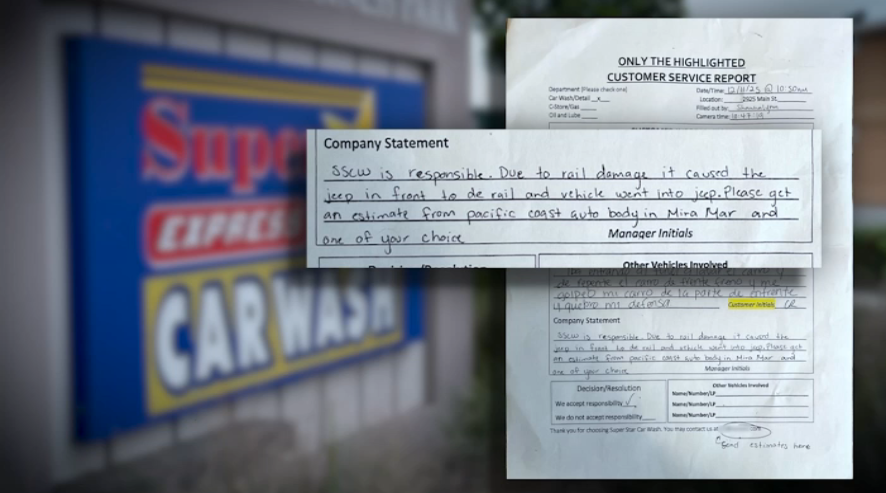 Super
EXPRESS
CAR WASH
ONLY THE HIGHLIGHTED
CUSTOMER SERVICE REPORT
Department (Please check one)
Car Wash/Detail x
C-Store/Gas
Oil and Lube
Date/Time: 12/11/25 @ 10:50am
Location: 2025 Main St.
Filled out by:
Camera time:
Company Statement
SSCW is responsible. Due to rail damage it caused the
jeep in front to de rail and vehicle went into jeep. Please get
an estimate from pacific coast auto body in Mira Mar and
one of your choice
Manager Initials
Decision/Resolution
Other Vehicles Involved
de repente el carro de frente freno y me
golpeo mi carro de la parte de enfrente
y quebro mi defensa
Customer Initials CR
Company Statement
SSCW is responsible. Due to rail damage it caused the
jeep in front to de rail and vehicle went into jeep. Please get
an estimate from pacific coast auto body in Mira Mar and
one of your choice
Manager Initials
Decision/Resolution
We accept responsibility ✓
We do not accept responsibility
Other Vehicles Involved
Name/Number/LP
Name/Number/LP
Name/Number/LP
Thank you for choosing Super Star Car Wash. You may contact us at
Send estimates here